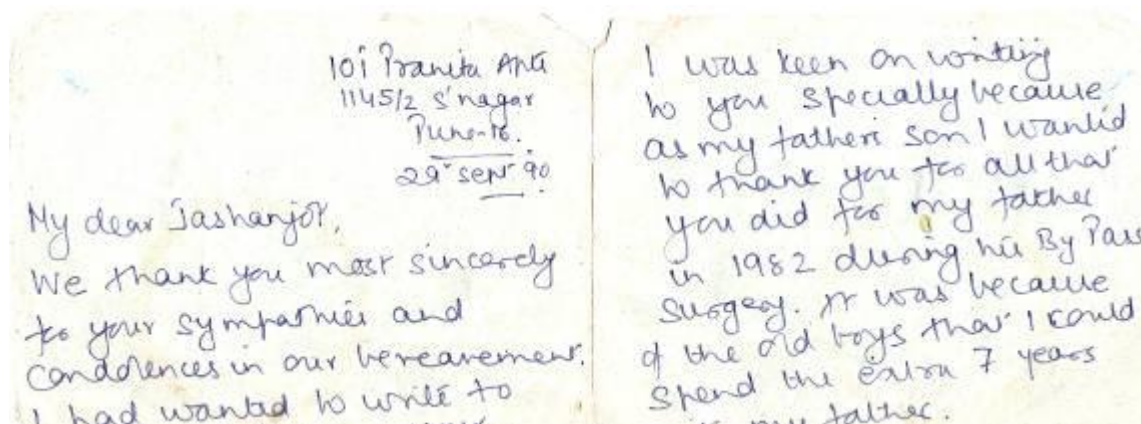 101 Pranita Apts
1145/2 S'nagar
Pune-16.
29 Sept 90
My dear Jashanjot,
We thank you most sincerely
for your sympathies and
condolences in our bereavement.
I had wanted to write to
I was keen on writing
to you specially because
as my fathers son I wanted
to thank you for all that
you did for my father
in 1982 during his By Pass
surgery. It was because
of the old boys that I could
spend the extra 7 years
my father.